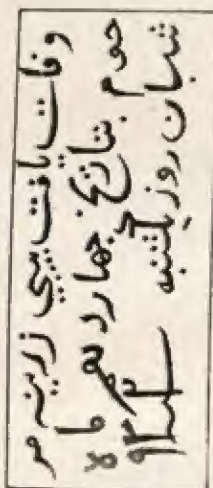 وفات یافت بیبی زرینه مر
حوم بتاریخ چهاردهم ما
شبان روز یکشنبه